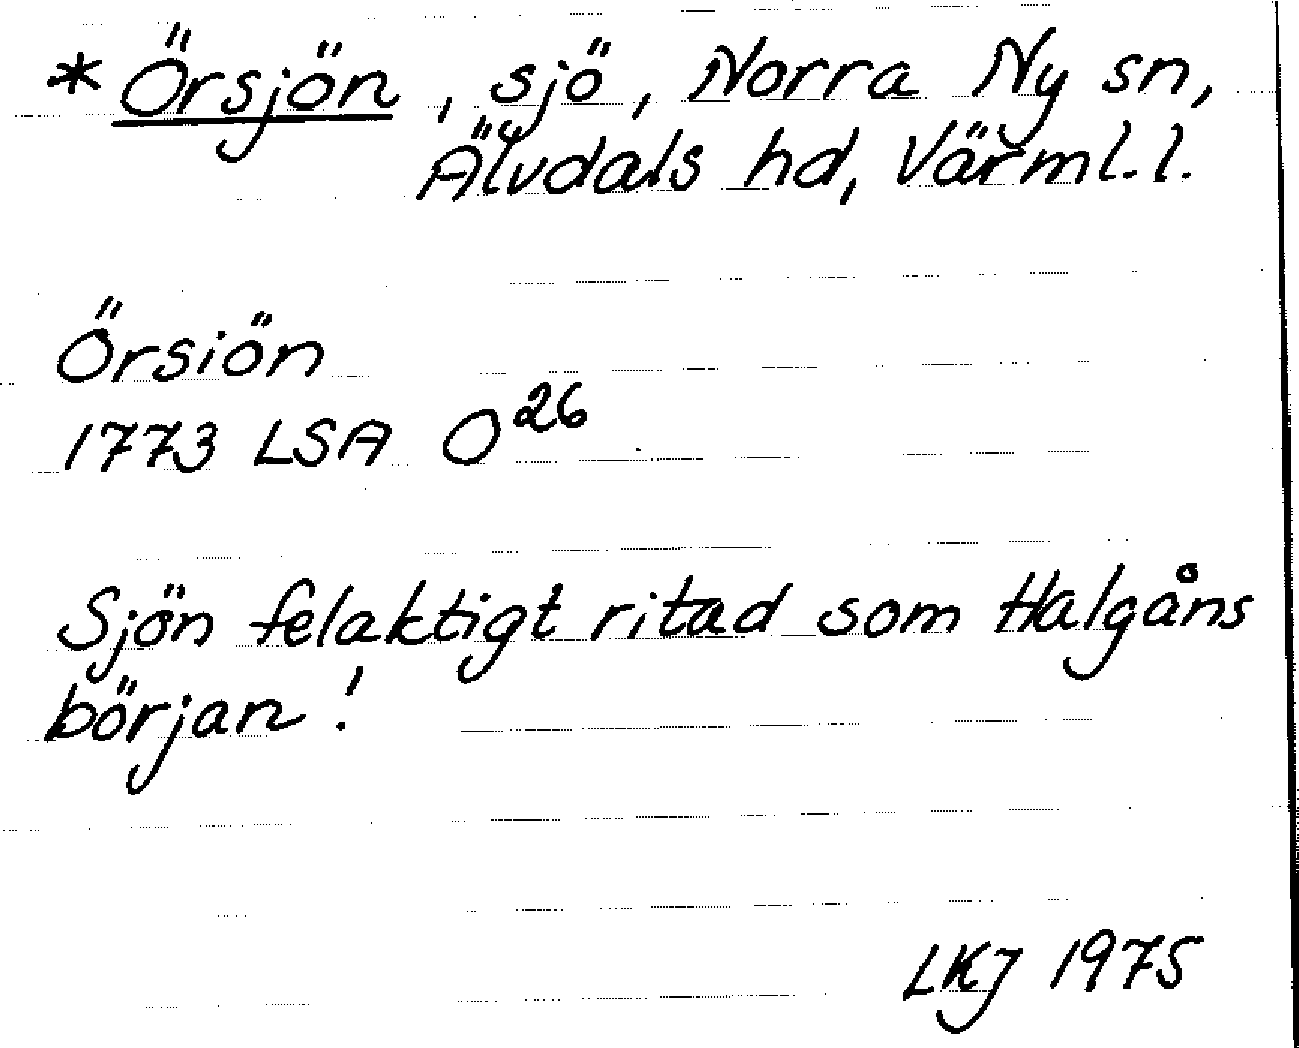 * Örsjön, sjö, Norra Ny sn,
Älvdals hd, Värml. l.
Örsiön
1773 LSA O26
Sjön felaktigt ritad som Halgåns
början!
LKJ 1975